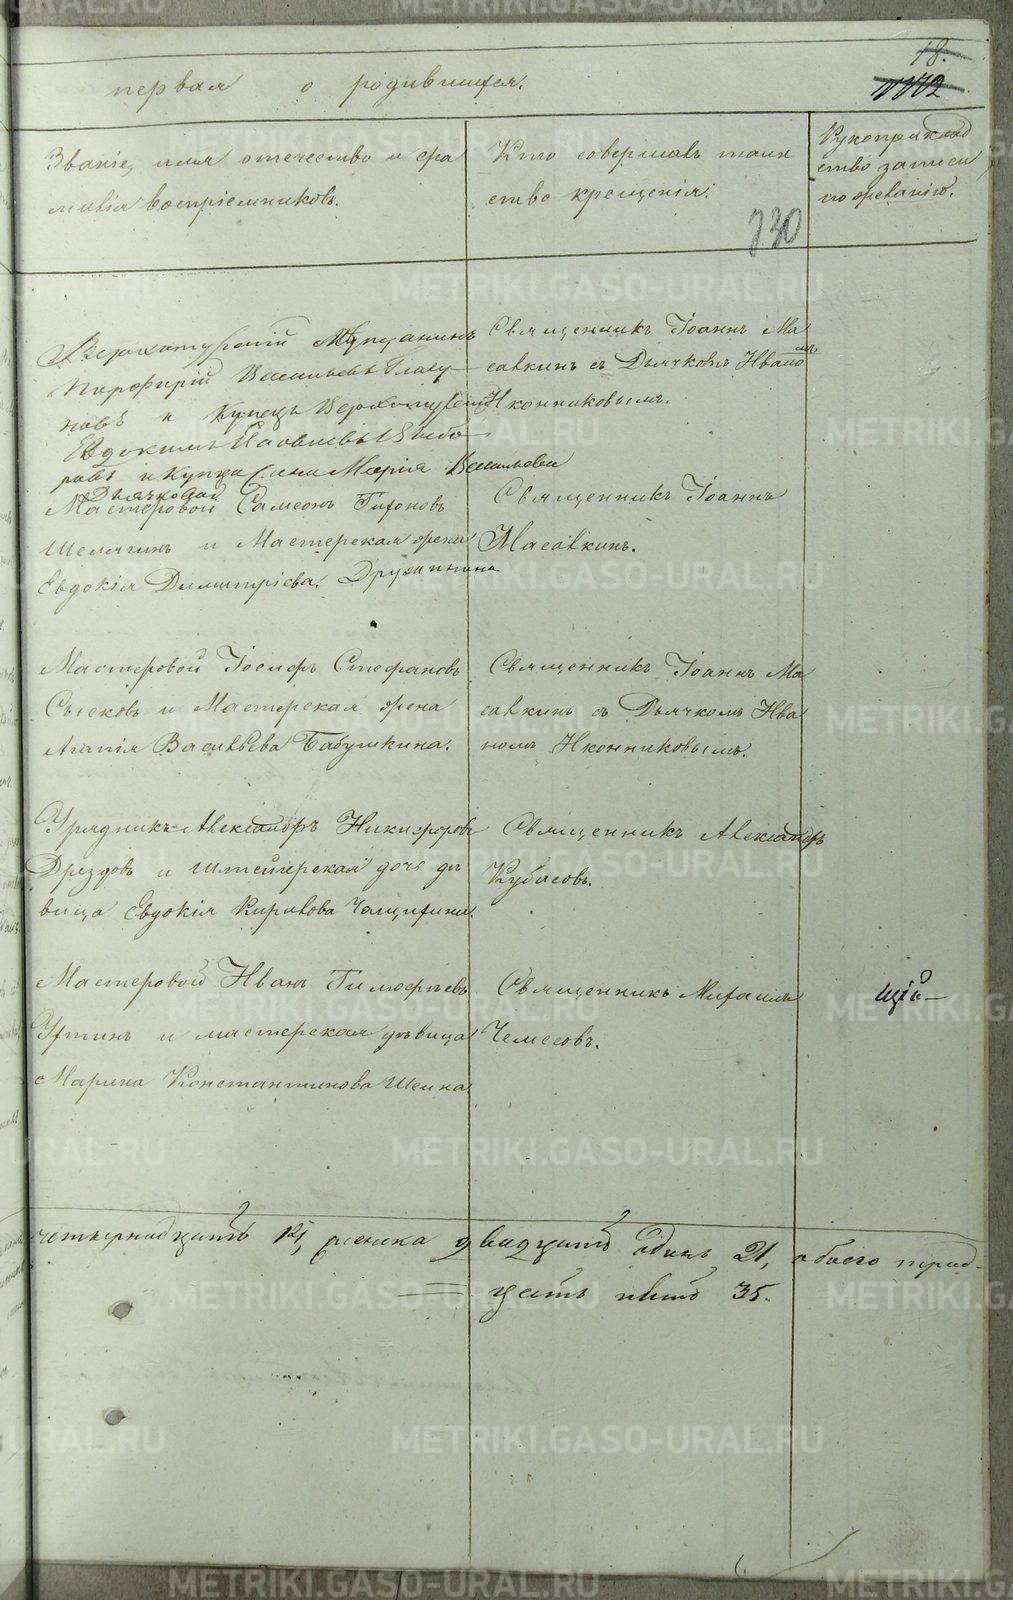 18.
1172
первая о родившихся.
Званіе, имя отечество и фа
милія воспріемниковъ.
Кто совершалъ таин
ство крещенія.
Рукоприклад
ство записи
по желанію.
730
Верхотурскій Мѣщанинъ
Порфирій Васильевъ Глазу
новъ и Купецъ Верхотурскій
Евдокимъ Іаковлевъ
и Купца жена Марія Васильева
Дьячкова
Священникъ Іоаннъ Ма
савкинъ съ Дьячкомъ Ивано
мъ
Иконниковымъ.
Мастеровой Самсонъ Тихоновъ
Шелягинъ и Мастерская жена
Евдокія Димитріева Дружинина
Священникъ Іоаннъ
Масавкинъ.
Мастеровой Іосифъ Стефановъ
Сысковъ и Мастерская жена
Агапія Васильева Бабушкина.
Священникъ Іоаннъ Ма
савкинъ съ Дьячкомъ Ива
номъ Иконниковымъ.
Урядникъ Александръ Никифоровъ
Дроздовъ и Штейгерская дочь дѣ
вица Евдокія Кирилова
Священникъ Александръ
Кубасовъ.
Мастеровой Иванъ Тимофѣевъ
Устинъ и мастерская дѣвица
Марина Константинова Шеина.
Священникъ Михаилъ
Чемесовъ.
щій
четырнадцать 14, женска двадцать одинъ 21, обоего трид-
цать пять 35.
METRIKI.GASO-URAL.RU